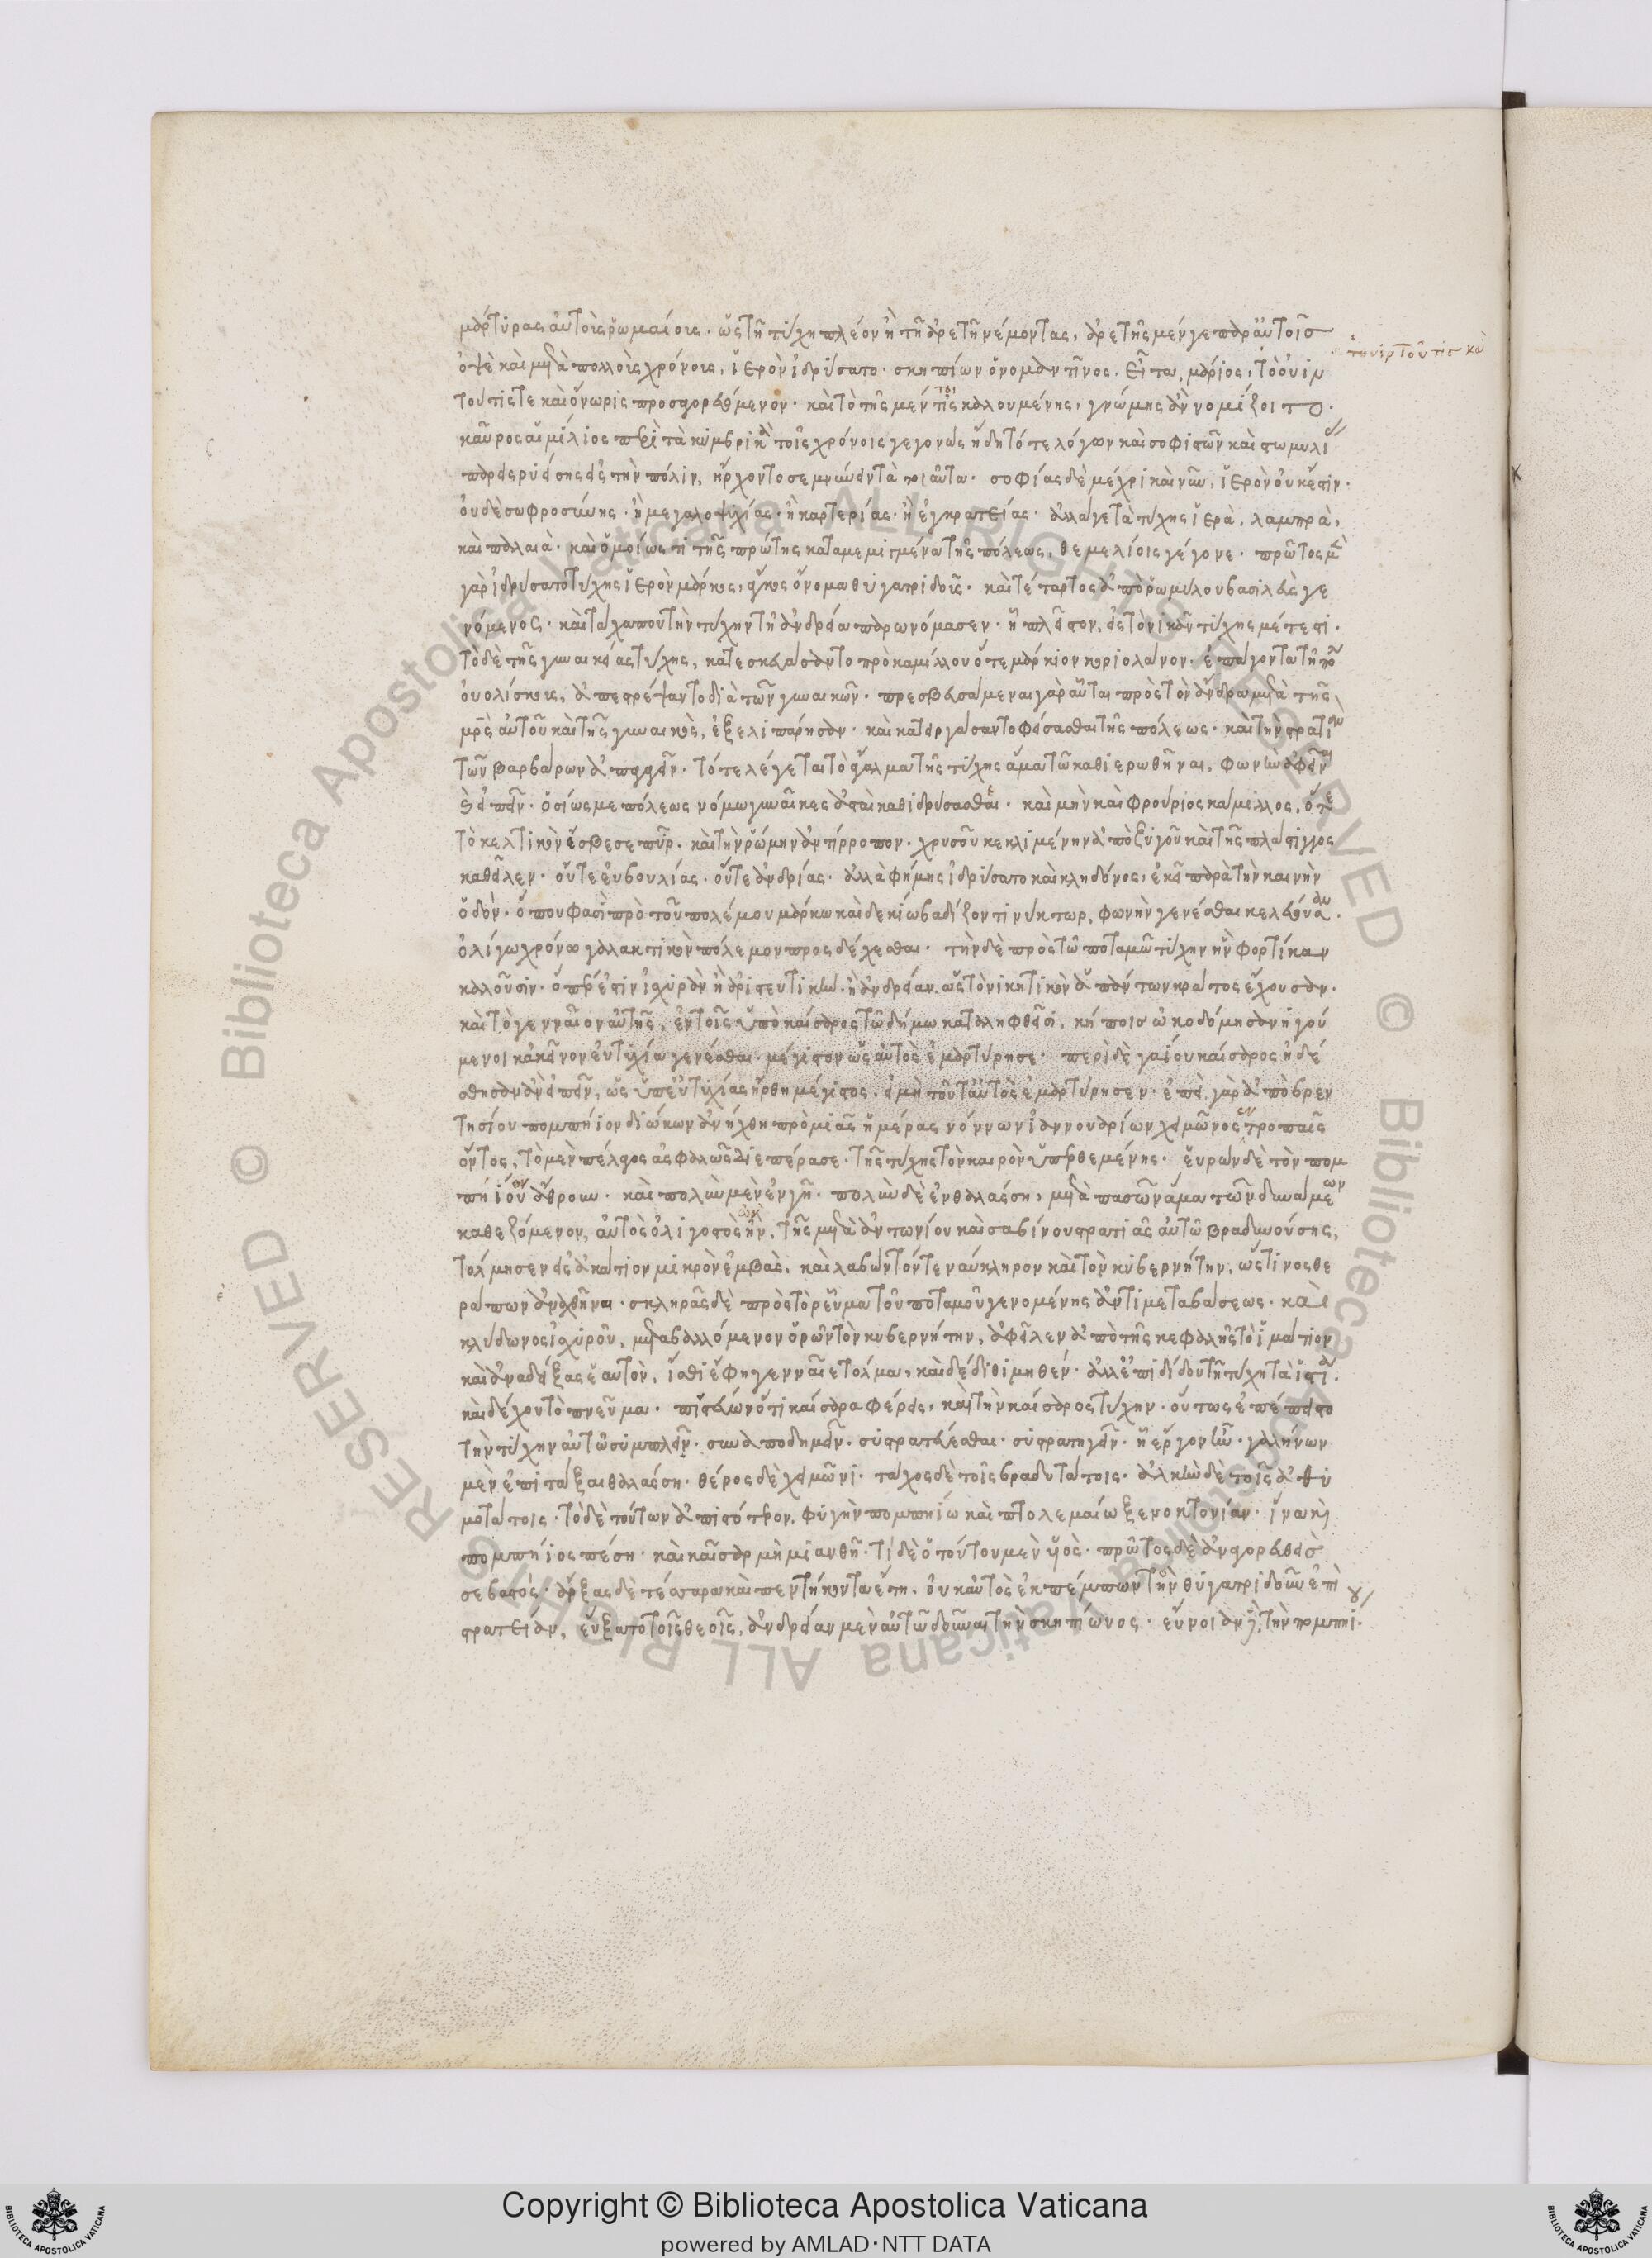 μάρτυρας αὐτοῖς ῥωμαίοις. ὡς τῆ τύχη πλέον ἢ τῆ ἀρετῆ νέμοντας, ἀρετῆς μέν γε παρ' αὐτοῖς
ὀψὲ καὶ μετὰ πολλοὺς χρόνους, ἱερὸν ἱδρύσατο σκηπίων ὁ νομαντῖνος. εἶτα μάριος, τὸ οὐιρ
τουτίς τε καὶ ὄνωρις προσαγορευόμενον. καὶ τὸ τῆς μέντις καλουμένης, γνώμης ἂν νομίζοιτο.
σκαῦρος αἰμίλιος περὶ τὰ κιμβρικὰ τοῖς χρόνοις γεγονὼς ἤδη τότε λόγων καὶ σοφιστῶν καὶ στωμυλί
παραρυείσης εἰς τὴν πόλιν, ἤρχοντο σεμνύειν τὰ τοιαῦτα. σοφίας δὲ μέχρι καὶ νῦν, ἱερὸν οὐκ ἔστιν.
οὐδὲ σωφροσύνης. ἢ μεγαλοψυχίας. ἢ καρτερίας. ἢ ἐγκρατείας. ἀλλά γε τὰ τύχης ἱερὰ, λαμπρὰ,
καὶ παλαιὰ. καὶ ὁμοίως τι τῆς πρώτης καταμεμιγμένα τῆς πόλεως, θεμελίοις γέγονε. πρῶτος μὲ
γὰρ ἱδρύσατο τύχης ἱερὸν μάρκος, ἄγκος ὄνομα θυγατριδοῦς. καὶ τέταρτος ἀπὸ ῥωμύλου βασιλεὺς γε
νόμενος. καὶ τάχα που τὴν τύχην τῆ ἀνδρεία παρωνόμασεν. ἧ πλεῖστον, εἰς τὸ νικᾶν τύχης μέτεστι.
τὸ δὲ τῆς γυναικείας τύχης, κατεσκευάσαντο πρὸ καμίλλου ὅτε μάρκιον κοριολανὸν, ἐπάγοντα τῆ πό
οὐολίσκους, ἀπεστρέψαντο διὰ τῶν γυναικῶν. πρεσβεύσαμεναι γὰρ αὗται πρὸς τὸν ἄνδρα μετὰ τῆς
μρ̅ς αὐτοῦ καὶ τῆς γυναικὸς, ἐξελιπάρησαν. καὶ κατειργάσαντο φείσασθαι τῆς πόλεως. καὶ τὴν στρατι
τῶν βαρβάρων ἀπαγαγεῖν. τότε λέγεται τὸ ἄγαλμα τῆς τύχης ἅμα τῶ καθιερωθῆναι, φωνὴν ἀφεῖναι
εἰπεῖν. ὁσίως με πόλεως νόμω γυναῖκες ἀσταὶ καθιδρύσασθε. καὶ μὴν καὶ φρούριος κάμιλλος, ὅτε
τὸ κελτικὸν ἔσβεσε πῦρ. καὶ τὴν ῥώμην ἀντίρροπον. χρυσοῦ κεκλιμένην ἀπὸ ζυγοῦ καὶ τῆς πλάστιγγος
καθεῖλεν. οὔτε εὐβουλίας. οὔτε ἀνδρίας. ἀλλὰ φήμης ἱδρύσατο καὶ κληδόνος, ἐκεῖ παρὰ τὴν καινὴν
ὁδὸν. ὅπου φασὶ πρὸ τοῦ πολέμου μάρκω καὶ δεκίω βαδίζοντι νύκτωρ, φωνὴν γενέσθαι κελεύουσαν.
ὀλίγω χρόνω γαλακτικὸν πόλεμον προσδέχεσθαι. τὴν δὲ πρὸς τῶ ποταμῶ τύχην ἣν φορτίκαν
καλοῦσιν. ὅπερ ἐστὶν ἰσχυρὰν ἢ ἀριστευτικὴν. ἢ ἀνδρείαν. ὡς τὸ νικητικὸν ἁπάντων κράτος ἔχουσαν.
καὶ τό γε νναῖον αὐτῆς, ἐν τοῖς ὑπὸ καίσαρος τῶ δήμω καταλειφθεῖσι, κήποις ὠκοδόμησαν ἡγού
μενοι κἀκεῖνον εὐτυχία γενέσθαι μέγιστον ὡς αὐτὸς ἐμαρτύρησε. περὶ δὲ γαίου καίσαρος ἠδέ
σθησαν ἂν εἰπεῖν, ὡς ὑπ' εὐτυχίας ἤρθη μέγιστος. εἰ μὴ τοῦτ' αὐτὸς ἐμαρτύρησεν. ἐπεὶ γὰρ ἀπὸ βρεν
τησίου πομπήιον διώκων ἀνήχθη πρὸ μιᾶς ἡμέρας νόννων ἰαννουαρίων χειμῶνος ἐν τροπαῖς
ὄντος, τὸ μὲν πέλαγος ἀσφαλῶς διεπέρασε. τῆς τύχης τὸν καιρὸν ὑπερθεμένης. εὑρὼν δὲ τὸν πομ
πήιον ἄθρουν. καὶ πολὺν μὲν ἐν γῆ. πολὺν δὲ ἐν θαλάσση, μετὰ πασῶν ἅμα τῶν δυνάμεων
καθεζόμενον, αὐτὸς ὀλιγοστὸς ἦν, τῆς μετὰ ἀντωνίου καὶ σαβίνου στρατιᾶς αὐτῶ βραδυνούσης,
τόλμησεν εἰς ἀκάτιον μικρὸν ἐμβὰς, καὶ λαβὼν τόν τε ναύκληρον καὶ τὸν κυβερνήτην, ὥς τινος θε
ράπων ἀναχθῆναι. σκληρᾶς δὲ πρὸς τὸ ρεῦμα τοῦ ποταμοῦ γενομένης ἀντιμεταβάσεως. καὶ
κλύδωνος ἰσχυροῦ, μεταβαλλόμενον ὁρῶν τὸν κυβερνήτην, ἀφεῖλεν ἀπὸ τῆς κεφαλῆς τὸ ἱμάτιον
καὶ ἀναδείξας ἑαυτὸν, ἴθι ἔφη γενναῖε τόλμα, καὶ δέδιθι μηθέν. ἀλλ' ἐπιδίδου τῆ τύχη τὰ ἱστία.
καὶ δέχου τὸ πνεῦμα. πιστεύων ὅτι καίσαρα φέρεις, καὶ τὴν καίσαρος τύχην. οὕτως ἐπέπειστο
τὴν τύχην αὐτῶ συμπλεῖν. συναποδημεῖν. συστρατεύεσθαι. συστρατηγεῖν. ἧς ἔργον ἦν. γαλήνων
μὲν ἐπιτάξαι θαλάσση. θέρος δὲ χειμῶνι. τάχος δὲ τοῖς βραδυτάτοις. ἀλκὴν δὲ τοῖς ἀθυ
μοτάτοις. τὸ δὲ τούτων ἀπιστότερον, φυγὴν πομπηίω καὶ πτολεμαίω ξενοκτονίαν. ἵνα καὶ
πομπήιος πέση. καὶ καῖσαρ μὴ μιανθῆ. τί δὲ ὁ τούτου μὲν υἱός. πρῶτος δὲ ἀναγορευθεὶς
σεβαστός. ἄρξας δὲ τέσσαρα καὶ πεντήκοντα ἔτη. οὐκ αὐτὸς ἐκπέμπων τὸν θυγατριδοῦν ἐπὶ
στρατείαν, εὔξατο τοῖς θεοῖς, ἀνδρείαν μὲν αὐτῶ δοῦναι τὴν σκηπίωνος. εὔνοιαν δὲ, τὴν πομπηΐου.